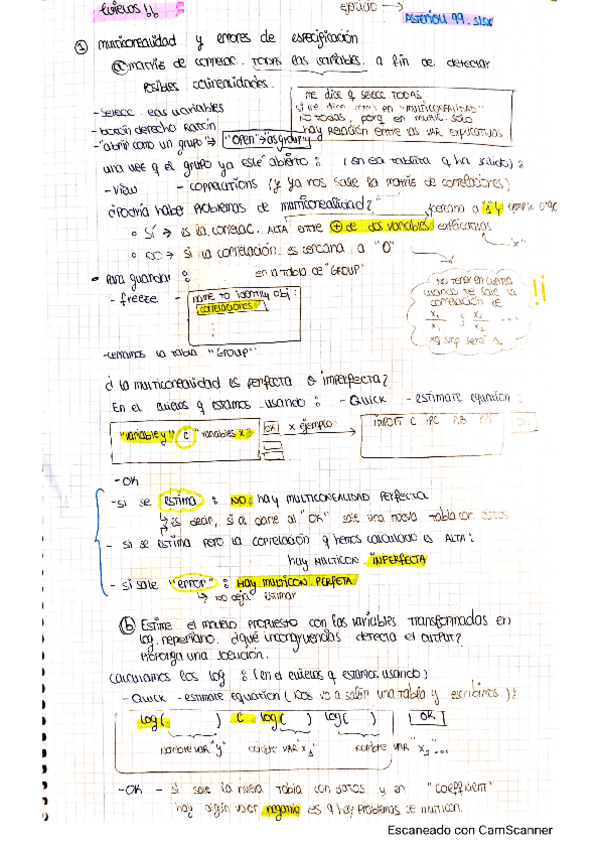 EVIEWS !!
EJERCICIO → ASTERIOU 99. S1.SX
① multicolinealidad y errores de especificación
ⓐ matriz de correlac. TODAS las variables a fin de detectar
posibles colinealidades.
ME DICE q SELECC. TODAS,
si me dice antes en "MULTICOLINEALIDAD"
NO TODAS, porq en MULTIC. solo
hay RELACIÓN ENTRE las VAR EXPLICATIVAS
- selecc. las variables
- botón derecho Ratón
- "abrir como un grupo" → "OPEN" → as group
una vez q el grupo ya esté abierto : (en la tablita q ha salido) :
- View - correlations (y ya nos sale la matriz de correlaciones)
¿Podría haber problemas de multicolinealidad?
cercana a 1 y ejemplo 0'96
◦ Sí → es la correlac. ALTA entre ⊕ de dos variables explicativas
"x"
◦ NO → si la correlación es cercana a "0"
- Para guardar : en la tabla de "GROUP"
- freeze - name to identify obj :
correlaciones
NO TENER EN CUENTA
cuando te sale la
correlación de
x₁/x₁ ; x₂/x₂ ...
xq smp será 1.
!!
- cerramos la tabla "GROUP"
¿ la multicolinealidad es perfecta o imperfecta?
En el eviews q estamos usando : - Quick - estimate equation :
"variable y" c "variables x" OK x ejemplo: → IMPORT C IPC PIB
- OK
- si se estima : NO hay MULTICOLINEALIDAD PERFECTA
↳ es decir, si al darle al "OK" sale una nueva tabla con datos
- si se estima pero la correlación q hemos calculado es ALTA :
hay MULTICON. IMPERFECTA
- si sale "error" : HAY MULTICON. PERFETA
↳ no deja estimar
ⓑ Estime el modelo propuesto con las variables transformadas en
log. neperiano. ¿qué incongruencias detecta el OUTPUT?
Proponga una solución.
Calculamos los log : (en el eviews q estamos usando)
- Quick - estimate equation (nos va a salir una tabla y escribimos) :
log( ) c log( ) log( ) OK
nombre VAR "y" nombre VAR "x₁" nombre VAR "x₂" ...
- OK - si sale la nueva tabla con datos y en "coefficient"
hay algún valor negativo es q hay problemas de multicon.
Escaneado con CamScanner